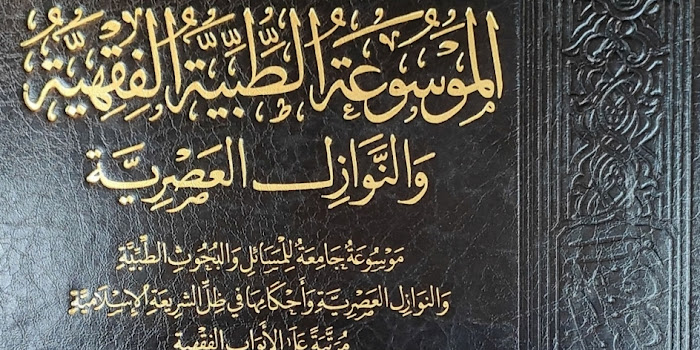 المَوْسُوعَةُ الطِّبِّيَّةُ الفِقْهِيَّةُ
وَالنَّوَازِلُ العَصْرِيَّةُ
مَوْسُوعَةٌ جَامِعَةٌ لِلْمَسَائِلِ وَالبُحُوثِ الطِّبِّيَّةِ
وَالنَوَازِلِ العَصْرِيَّةِ وَأَحْكَامِهَا فِي ظِلِّ الشَّرِيعَةِ الإِسْلَامِيَّةِ
مُرَتَّبَةٌ عَلَى الأَبْوَابِ الفِقْهِيَّةِ